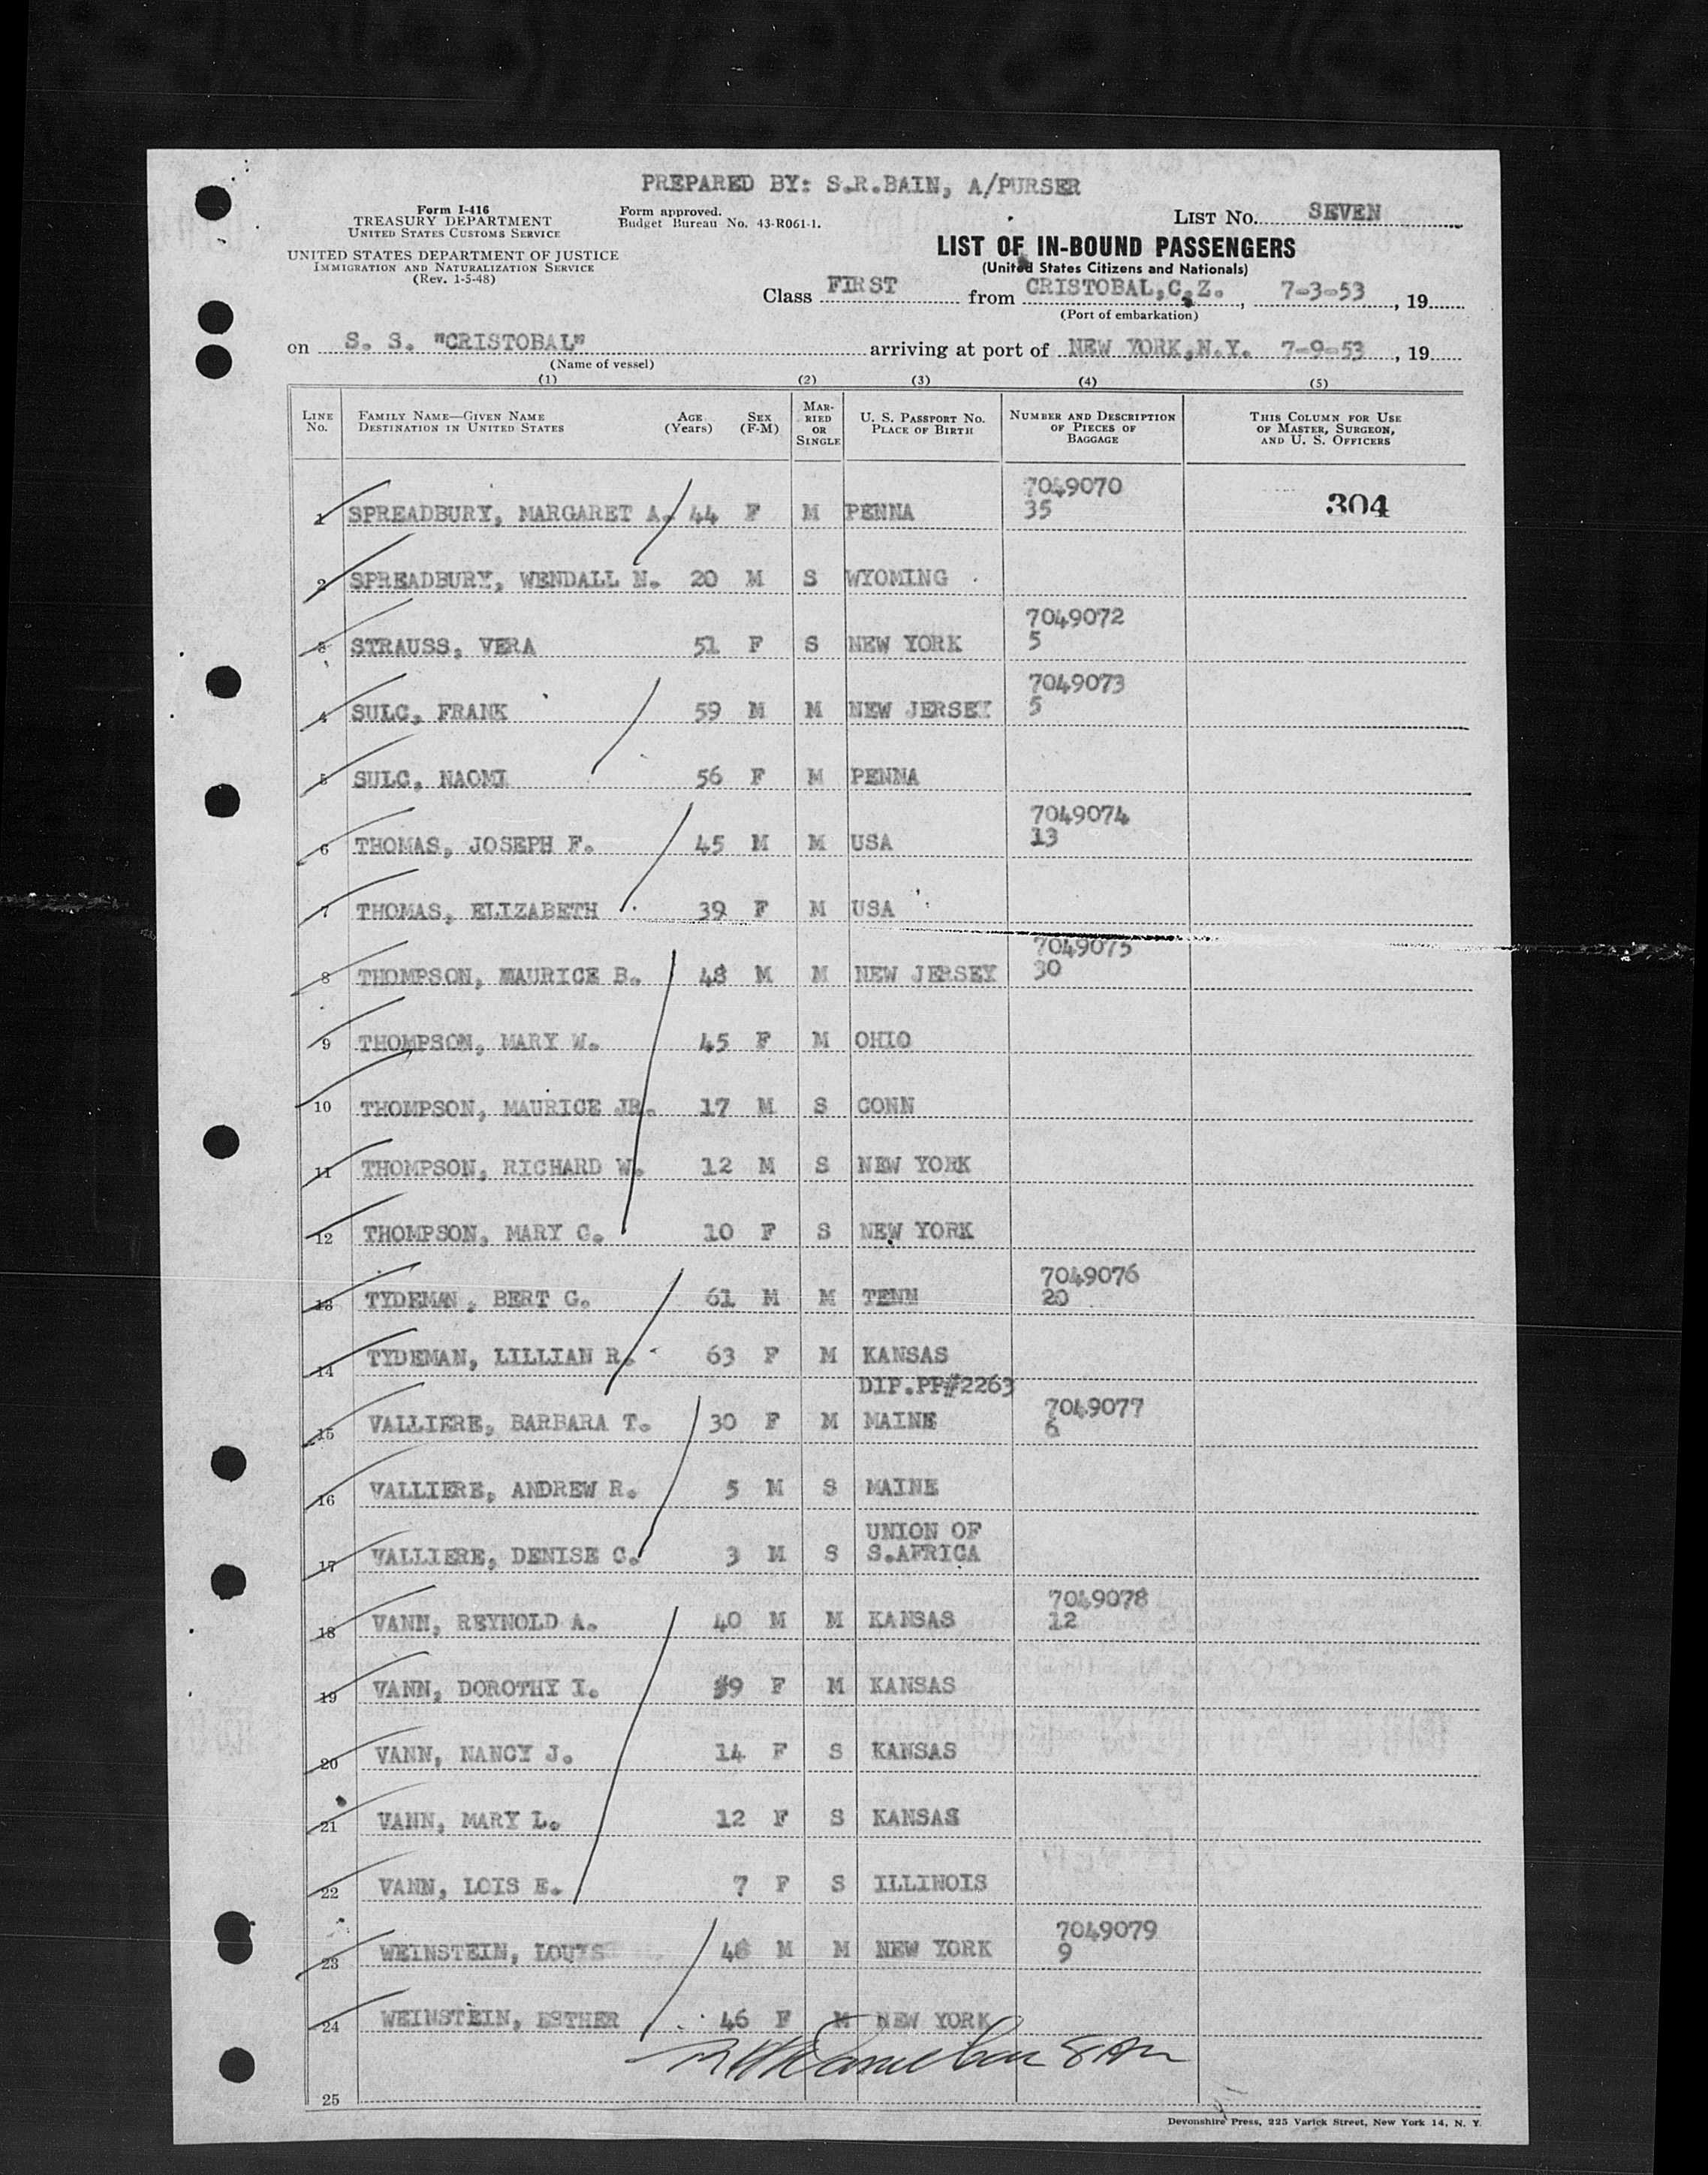 PREPARED BY: S.R.BAIN, A/PURSER
Form I-416
TREASURY DEPARTMENT
UNITED STATES CUSTOMS SERVICE
UNITED STATES DEPARTMENT OF JUSTICE
IMMIGRATION AND NATURALIZATION SERVICE
(Rev. 1-5-48)
Form approved.
Budget Bureau No. 43-R061-1.
LIST No. SEVEN
LIST OF IN-BOUND PASSENGERS
(United States Citizens and Nationals)
Class FIRST from CRISTOBAL,C.Z., 7-3-53, 19
(Port of embarkation)
on S. S. "CRISTOBAL" arriving at port of NEW YORK,N.Y. 7-9-53, 19
(Name of vessel)
(1) (2) (3) (4) (5)
LINE No. FAMILY NAME—GIVEN NAME DESTINATION IN UNITED STATES AGE (Years) SEX (F-M) MARRIED OR SINGLE U. S. PASSPORT No. PLACE OF BIRTH NUMBER AND DESCRIPTION OF PIECES OF BAGGAGE THIS COLUMN FOR USE OF MASTER, SURGEON, AND U. S. OFFICERS
7049070
1 SPREADBURY, MARGARET A. 44 F M PENNA 35 304
2 SPREADBURY, WENDALL N. 20 M S WYOMING
7049072
3 STRAUSS, VERA 51 F S NEW YORK 5
7049073
4 SULC, FRANK 59 M M NEW JERSEY 5
5 SULC, NAOMI 56 F M PENNA
7049074
6 THOMAS, JOSEPH F. 45 M M USA 13
7 THOMAS, ELIZABETH 39 F M USA
7049075
8 THOMPSON, MAURICE B. 48 M M NEW JERSEY 30
9 THOMPSON, MARY W. 45 F M OHIO
10 THOMPSON, MAURICE JR. 17 M S CONN
11 THOMPSON, RICHARD W. 12 M S NEW YORK
12 THOMPSON, MARY C. 10 F S NEW YORK
7049076
13 TYDEMAN, BERT G. 61 M M TENN 20
14 TYDEMAN, LILLIAN R. 63 F M KANSAS
DIP.PP#2263 7049077
15 VALLIERE, BARBARA T. 30 F M MAINE 6
16 VALLIERE, ANDREW R. 5 M S MAINE
UNION OF
17 VALLIERE, DENISE C. 3 M S S.AFRICA
7049078
18 VANN, REYNOLD A. 40 M M KANSAS 12
19 VANN, DOROTHY I. 39 F M KANSAS
20 VANN, NANCY J. 14 F S KANSAS
21 VANN, MARY L. 12 F S KANSAS
22 VANN, LOIS E. 7 F S ILLINOIS
7049079
23 WEINSTEIN, LOUIS M M NEW YORK 9
24 WEINSTEIN, ESTHER 46 F M NEW YORK
25
Devonshire Press, 225 Varick Street, New York 14, N. Y.